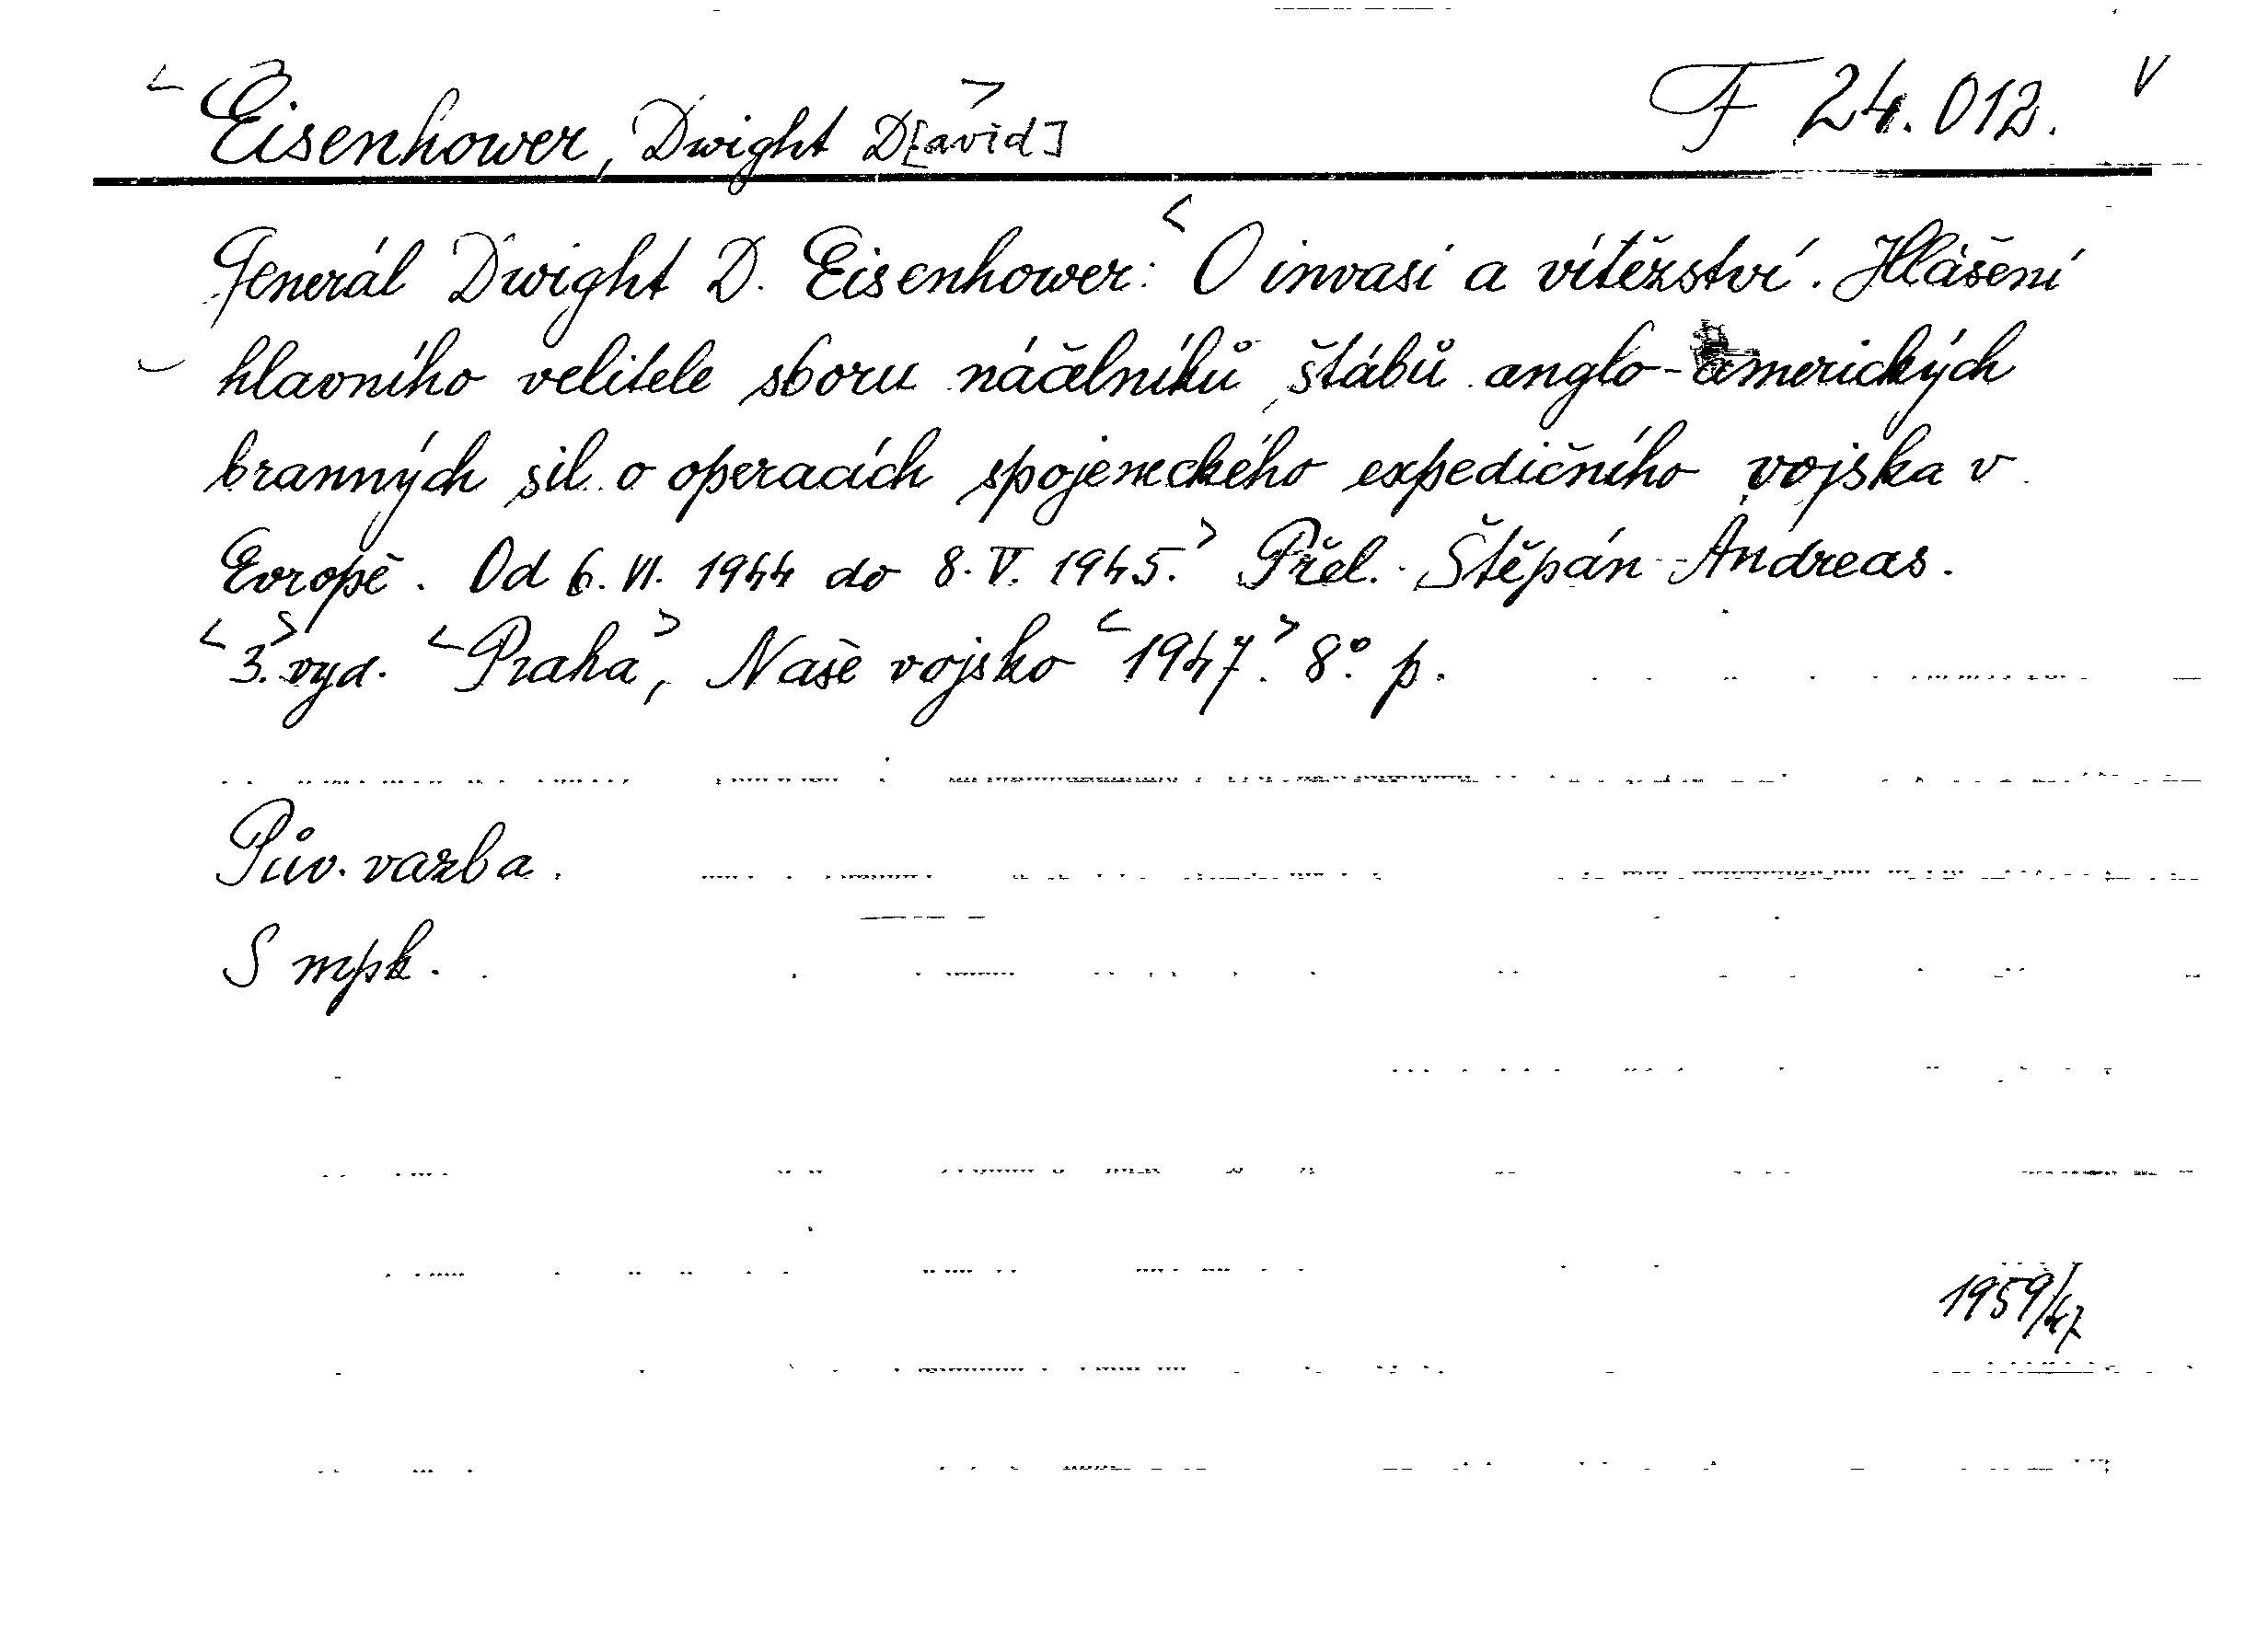 <Eisenhower, Dwight D[avid]> F 24.012. V
Generál Dwight D. Eisenhower: <O invasi a vítězství. Hlášení
hlavního velitele sboru náčelníků štábů anglo-amerických
branných sil o operacích spojeneckého expedičního vojska v
Evropě. Od 6. VI. 1944 do 8. V. 1945.> Přel. Štěpán Andreas.
<3.> vyd. <Praha>, Naše vojsko <1947>. 8° p.
Pův. vazba.
S mpk.
1959/47